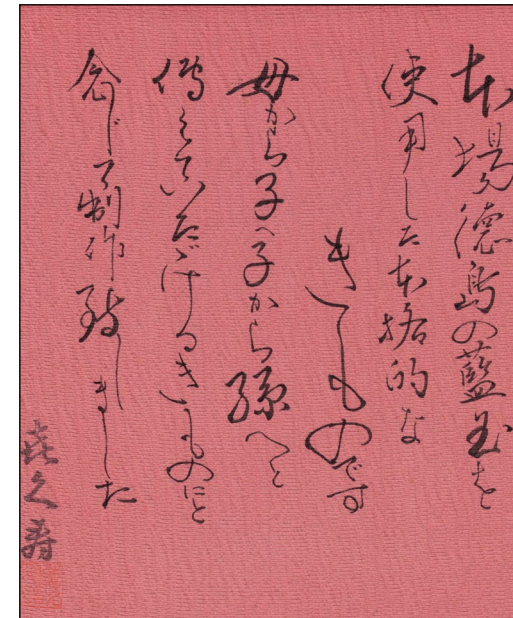 本場徳島の藍玉を
使用した本格的な
きものです
母から子へ子から孫へと
傳えていただけるきものにと
念じて制作致しました
喜久寿